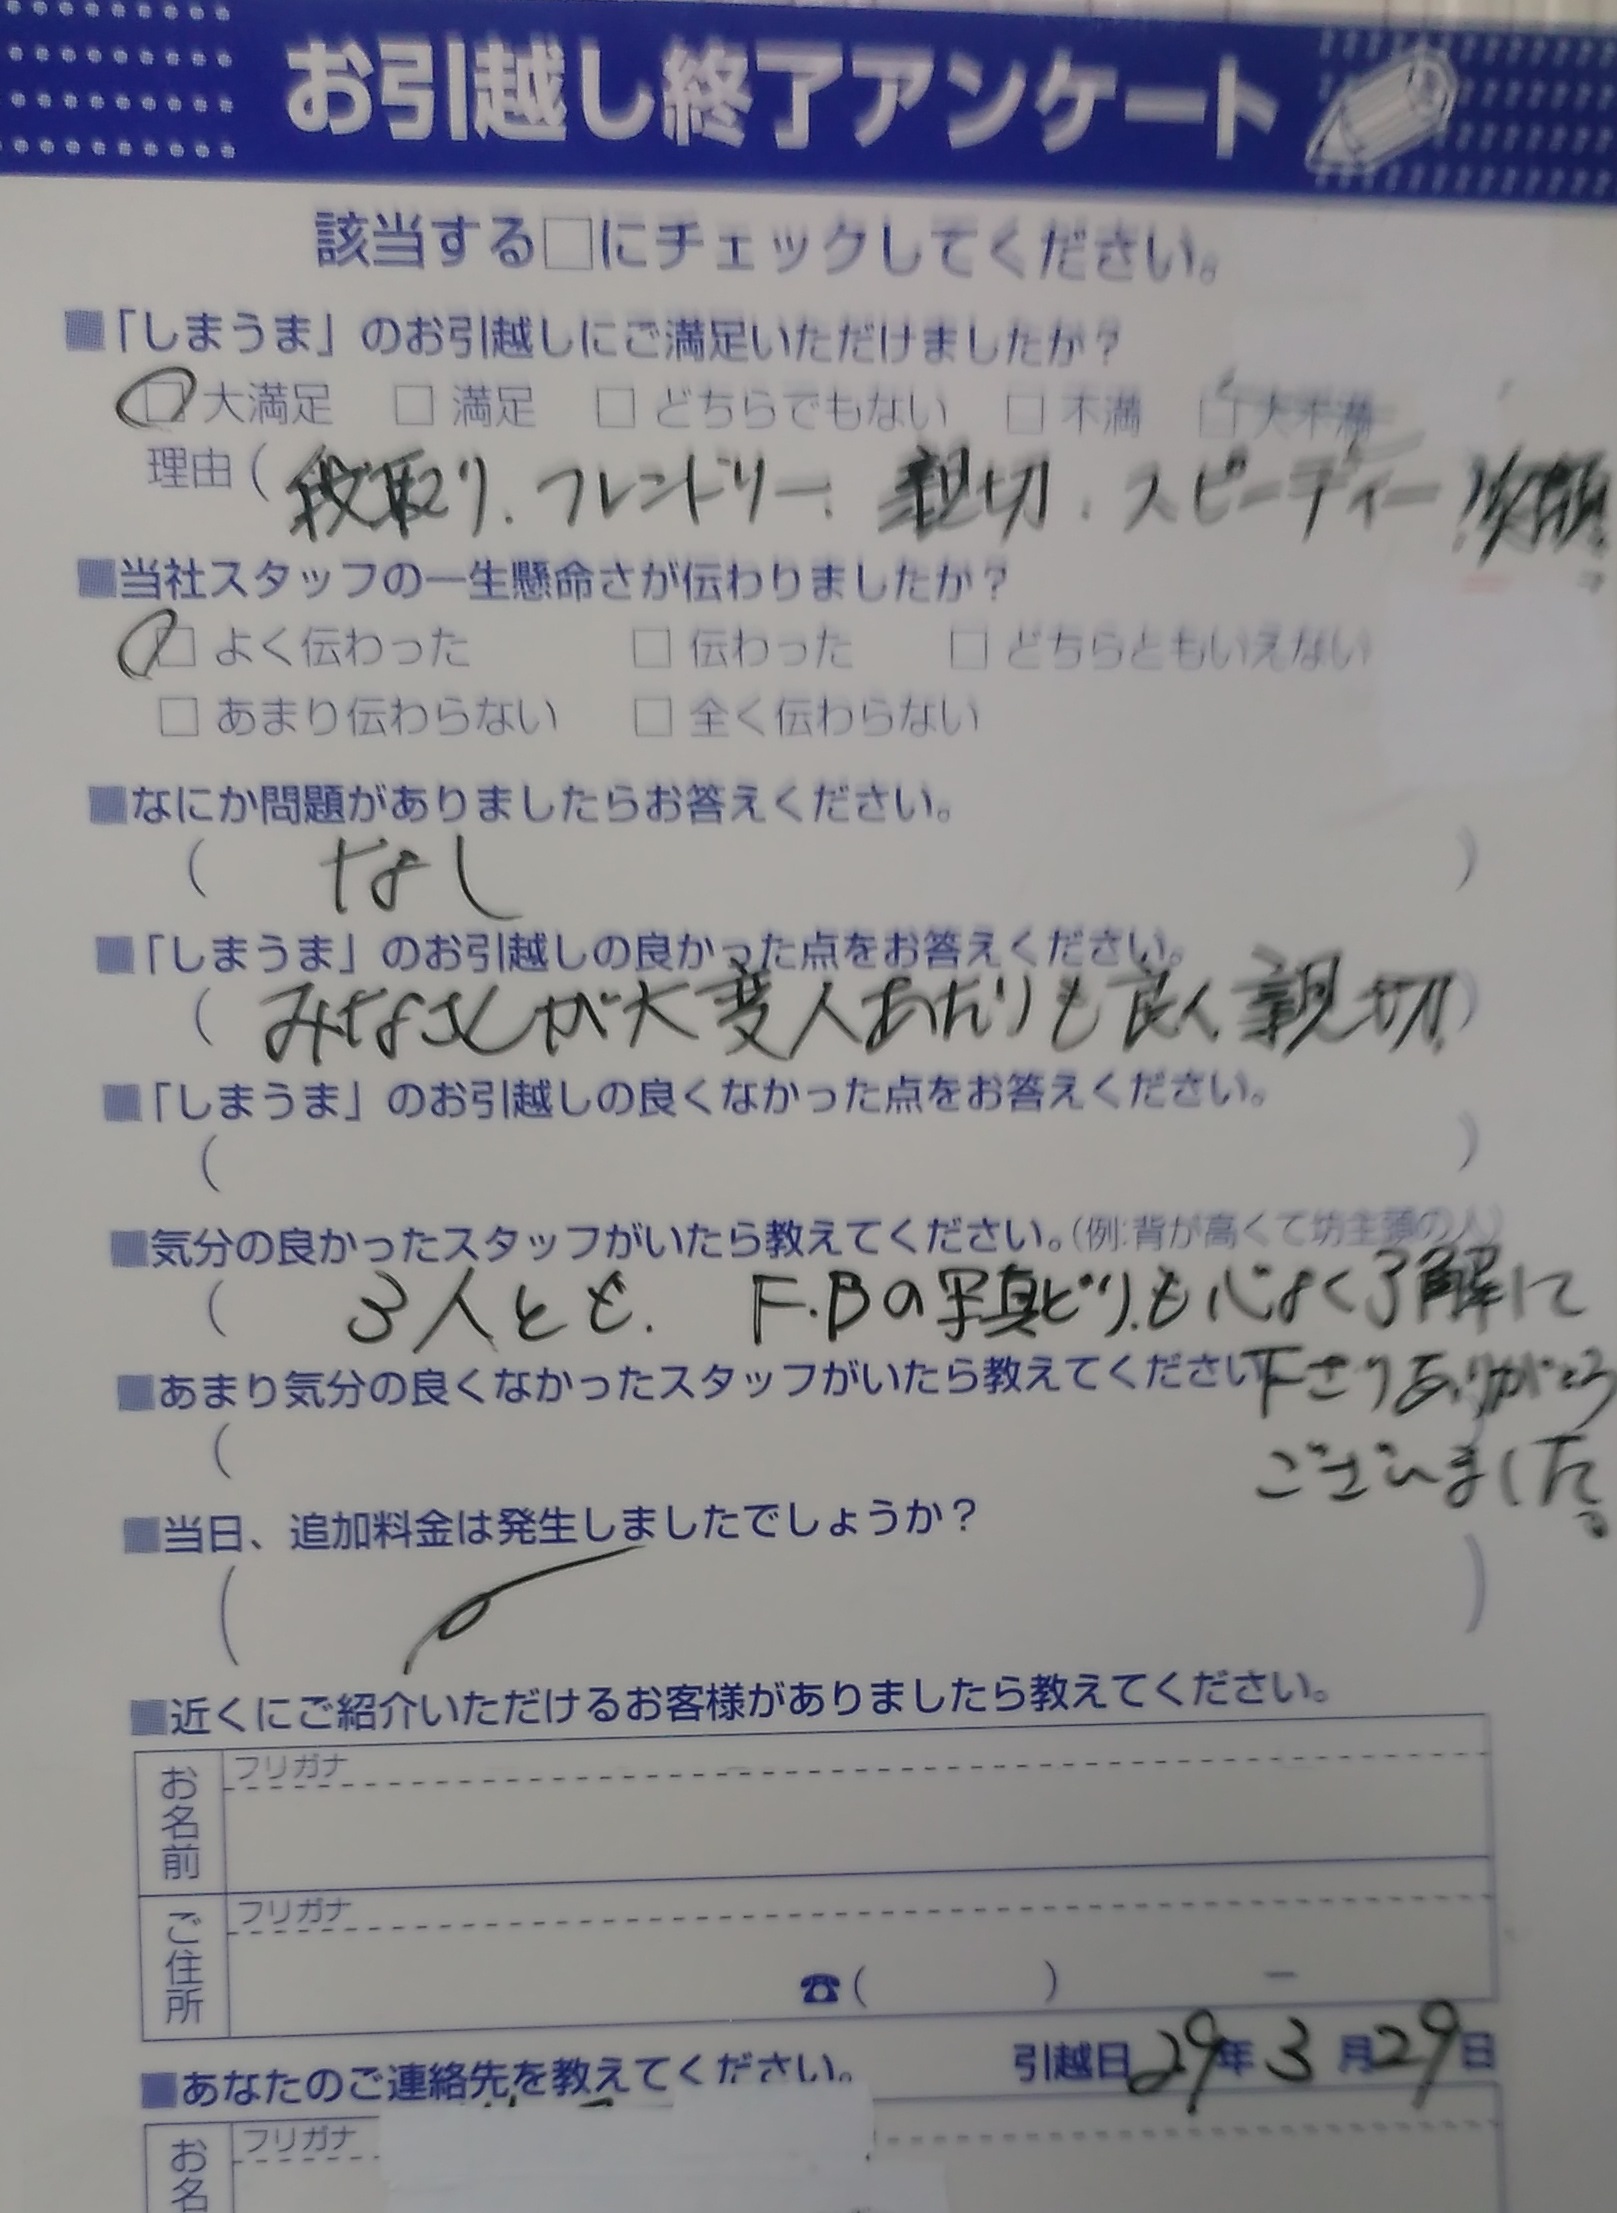 お引越し終了アンケート
該当する□にチェックしてください。
■「しまうま」のお引越しにご満足いただけましたか?
□大満足 □満足 □どちらでもない □不満 □大不満
理由( 段取り、フレンドリー、親切、スピーディー、笑顔
■当社スタッフの一生懸命さが伝わりましたか?
□よく伝わった □伝わった □どちらともいえない
□あまり伝わらない □全く伝わらない
■なにか問題がありましたらお答えください。
( なし )
■「しまうま」のお引越しの良かった点をお答えください。
( みなさんが大変人あたりも良く、親切! )
■「しまうま」のお引越しの良くなかった点をお答えください。
( )
■気分の良かったスタッフがいたら教えてください。(例:背が高くて坊主頭の人)
( 3人とも. F.Bの写真どりも心よく了解して
下さりありがとう
ございました。
■あまり気分の良くなかったスタッフがいたら教えてください
( )
■当日、追加料金は発生しましたでしょうか?
( )
■近くにご紹介いただけるお客様がありましたら教えてください。
お名前 フリガナ
ご住所 フリガナ
☎( ) −
引越日29年3月29日
■あなたのご連絡先を教えてください。
お名 フリガナ